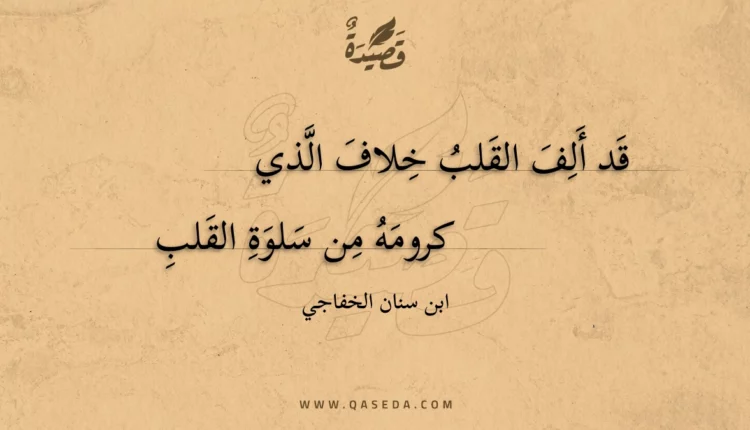 قَصِيْدَةٌ
قَد أَلِفَ القَلبُ خِلافَ الَّذي
كرومَهُ مِن سَلوَةِ القَلبِ
ابن سنان الخفاجي
WWW.QASEDA.COM